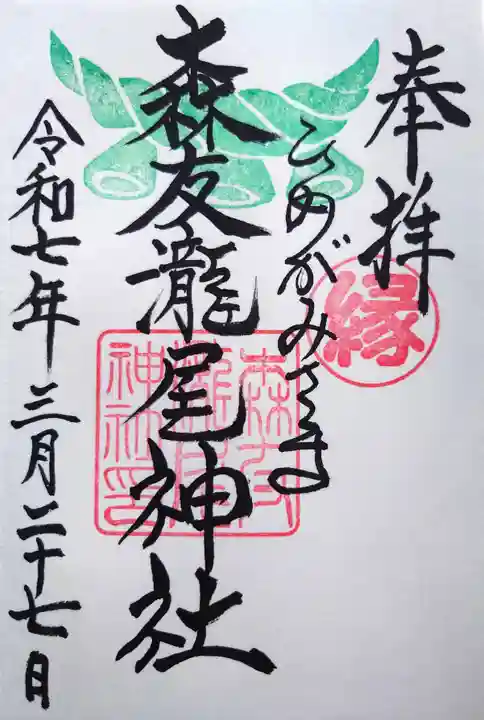 奉拝
縁
ひめがみさま
森友瀧尾神社
神社印
令和七年三月二十七日